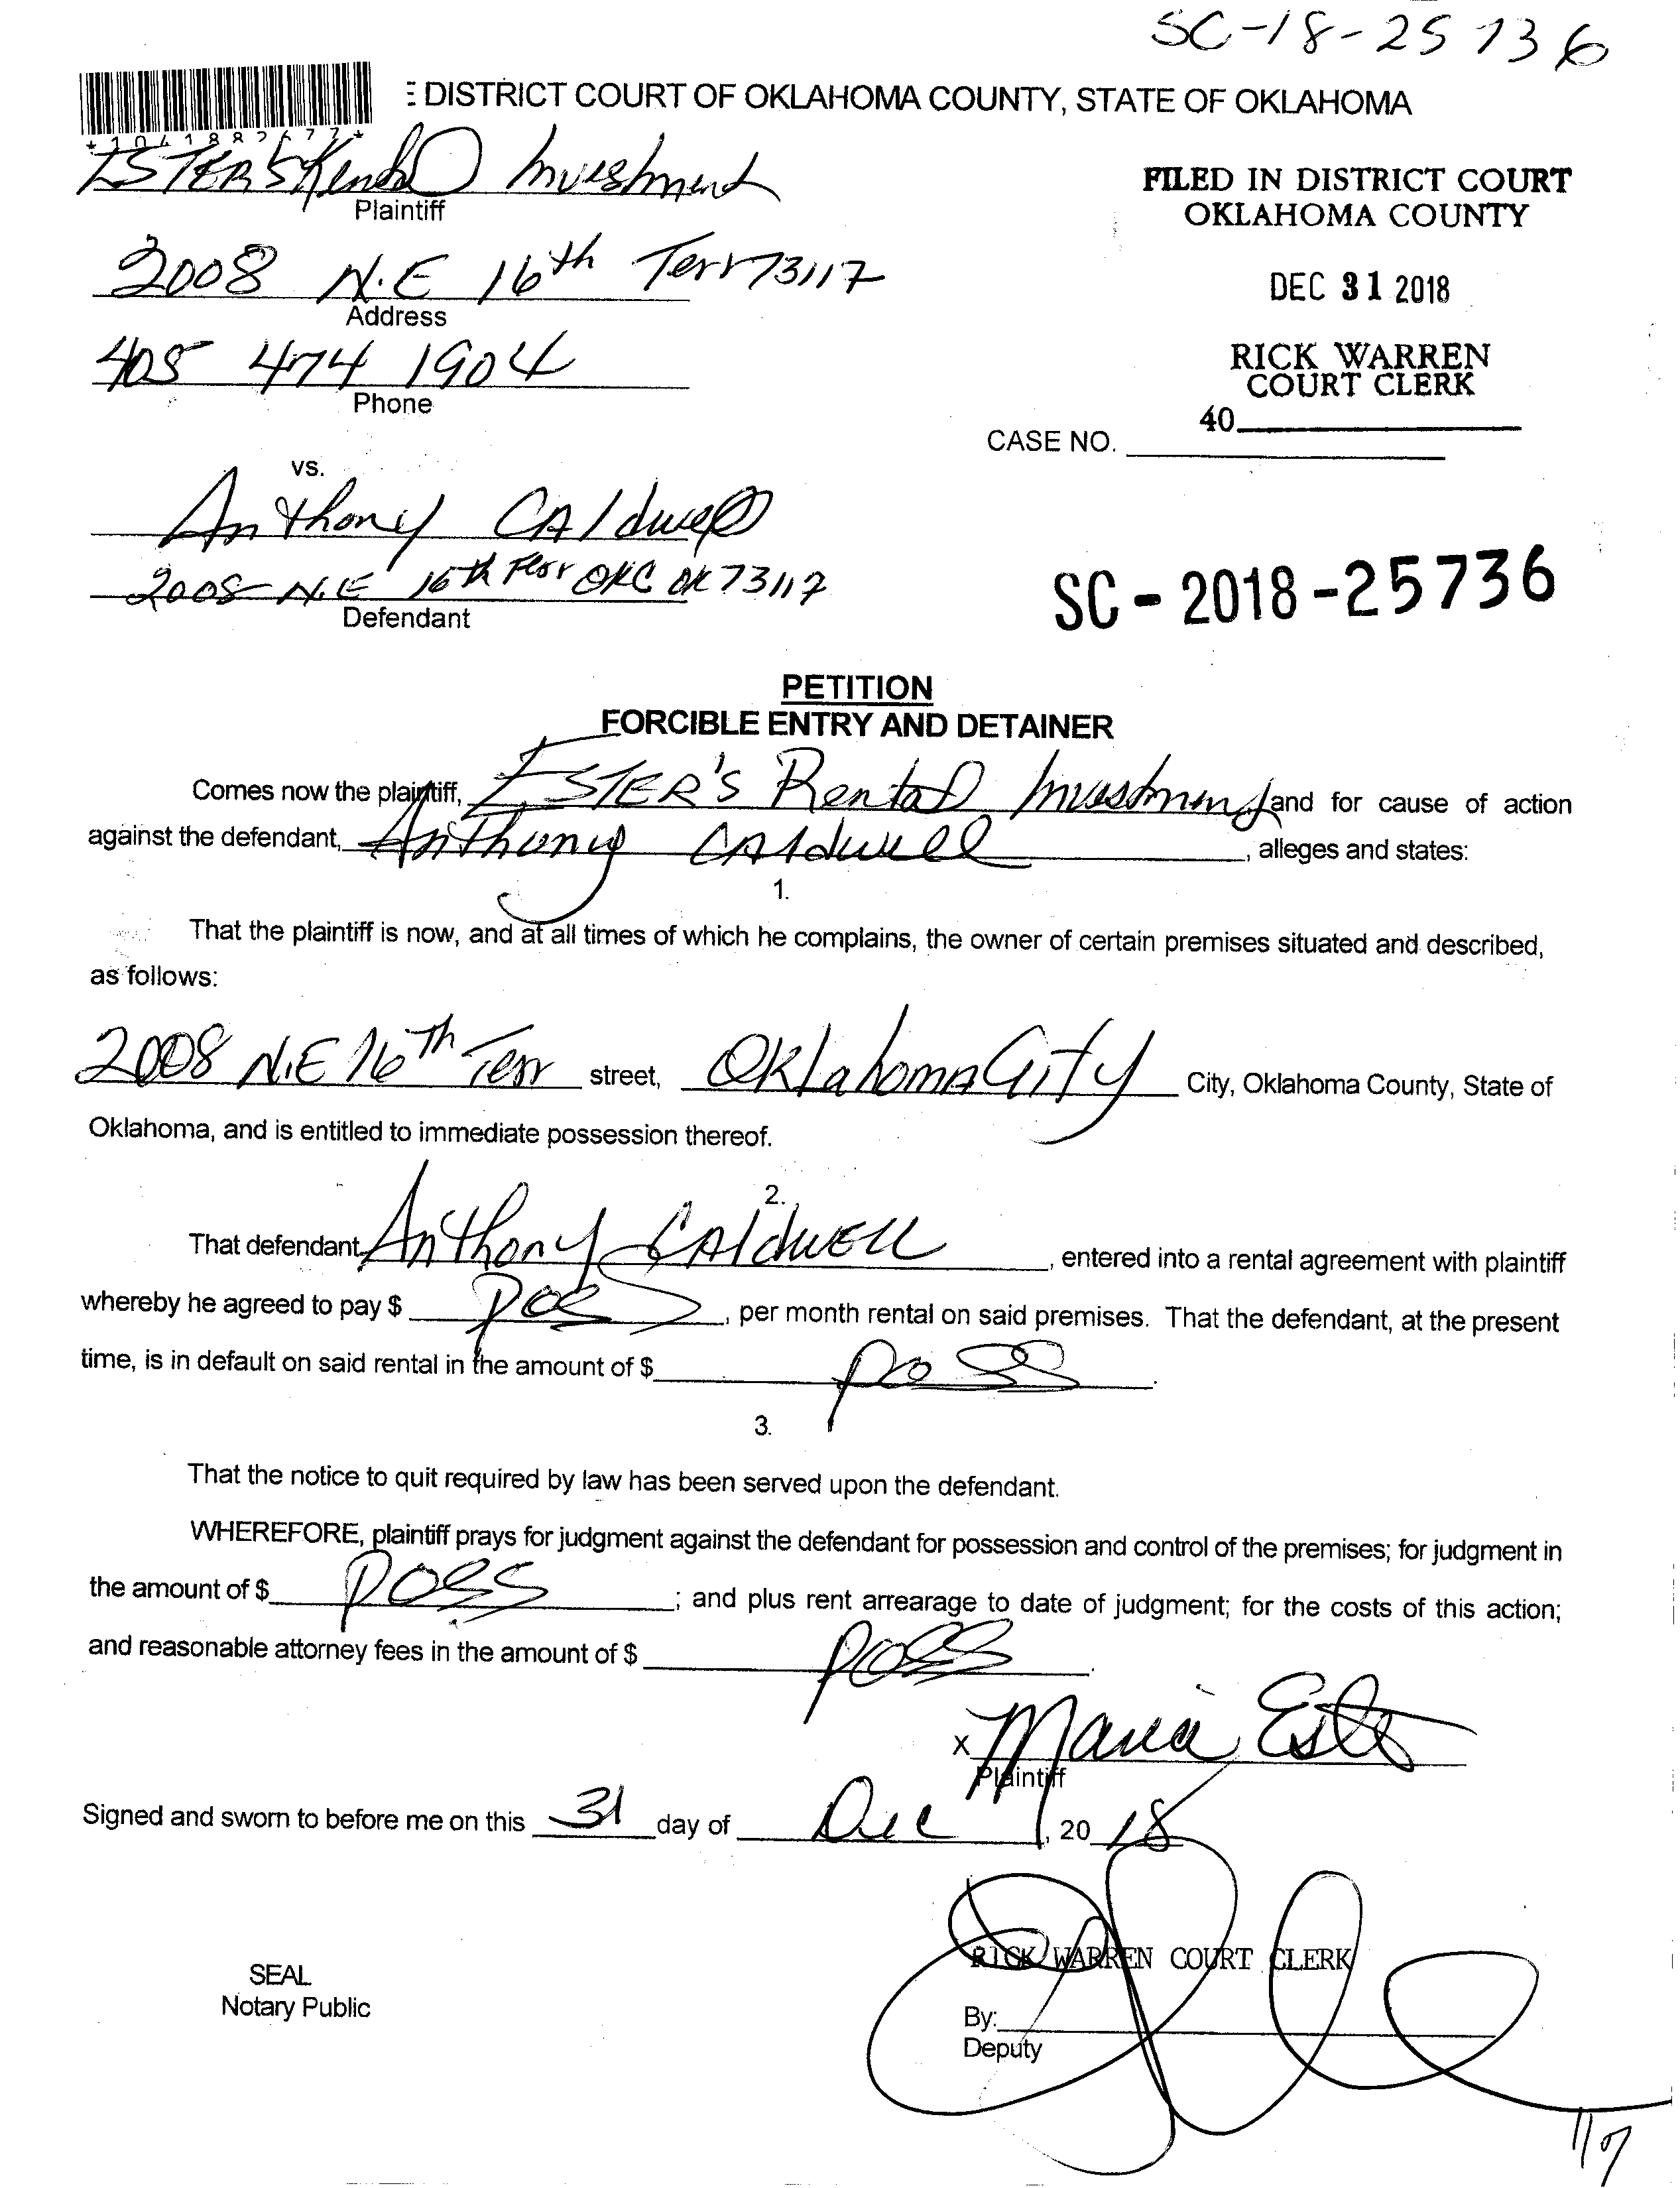 SC-18-25736
E DISTRICT COURT OF OKLAHOMA COUNTY, STATE OF OKLAHOMA
*1041882677*
ESTER'S Rental Investment
Plaintiff
FILED IN DISTRICT COURT
OKLAHOMA COUNTY
2008 N.E 16th Terr 73117
Address
DEC 31 2018
405 474 1904
Phone
RICK WARREN
COURT CLERK
40
CASE NO.
vs.
Anthony CAldwell
2008 N.E 16th Terr OKC OK 73117
Defendant
SC - 2018 - 25736
PETITION
FORCIBLE ENTRY AND DETAINER
Comes now the plaintiff, ESTER'S Rental Investment and for cause of action
against the defendant, Anthony CAldwell, alleges and states:
1.
That the plaintiff is now, and at all times of which he complains, the owner of certain premises situated and described,
as follows:
2008 N.E 16th Terr street, Oklahoma City City, Oklahoma County, State of
Oklahoma, and is entitled to immediate possession thereof.
2.
That defendant Anthony CAldwell, entered into a rental agreement with plaintiff
whereby he agreed to pay $ poss, per month rental on said premises. That the defendant, at the present
time, is in default on said rental in the amount of $ poss.
3.
That the notice to quit required by law has been served upon the defendant.
WHEREFORE, plaintiff prays for judgment against the defendant for possession and control of the premises; for judgment in
the amount of $ poss; and plus rent arrearage to date of judgment; for the costs of this action;
and reasonable attorney fees in the amount of $ poss.
x Maria Ester
Plaintiff
Signed and sworn to before me on this 31 day of Dec, 2018
RICK WARREN COURT CLERK
SEAL
Notary Public
By:
Deputy